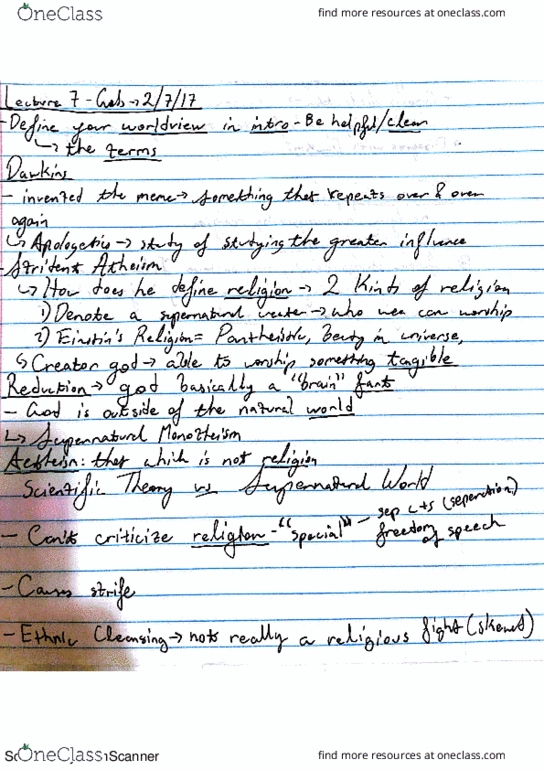 OneClass find more resources at oneclass.com
Lecture 7 - Geb → 2/7/17
- Define your worldview in intro - Be helpful/clear
↳ the terms
Dawkins
- invented the meme → something that repeats over & over
again
↳ Apologetics → study of studying the greater influence
- Strident Atheism
↳ How does he define religion → 2 Kinds of religion
1) Denote a supernatural creator → who we can worship
2) Einstin's Religion = Pantheistic, beuty in universe,
↳ Creator god → able to worship something tangible
Reduction → god basically a "brain" fart
- God is outside of the natural world
↳ Supernatural Monotheism
: that which is not religion
Scientific Theory vs Supernatural World
- Can't criticize religion - "special" - sep c+s (seperation)
freedom of speech
- Causes strife
- Ethnic Cleansing → not really a religious fight (skewed)
OneClass Scanner find more resources at oneclass.com